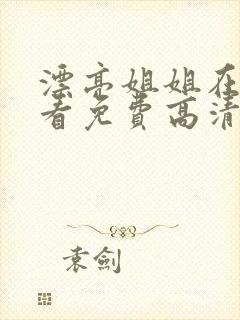 漂亮姐姐在
看免费高清
袁劍